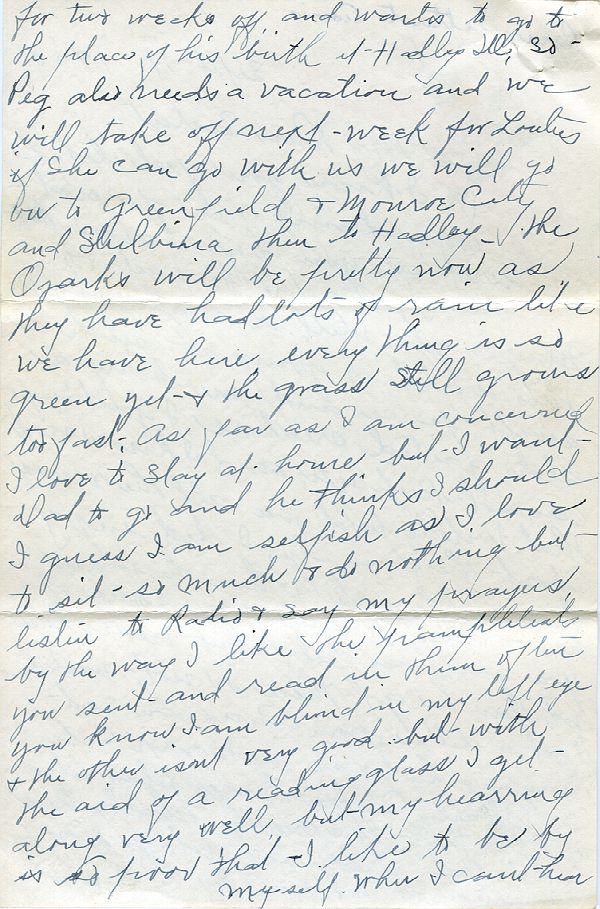 for two weeks off and wants to go to
the place of his birth at Hadley Ill, so -
Peg also needs a vacation and we
will take off next - week for Louties
if she can go with us we will go
on to Greenfield & Monroe City
and Shelbina then to Hadley - the
Ozarks will be pretty now as
they have had lots of rain like
we have here, every thing is so
green yet - & the grass still grows
too fast. As far as I am concerned
I love to stay at home but - I want -
Dad to go and he thinks I should
I guess I am selfish as I love
to sit - so much & do nothing but -
listen to Radio & say my prayers,
by the way I like the pamphleats
you sent - and read in them often
you know I am blind in my left eye
& the other isnt very good. but - with
the aid of a reading glass I get -
along very well, but - my hearring
is so poor that - I like to be by
my self. when I cant hear